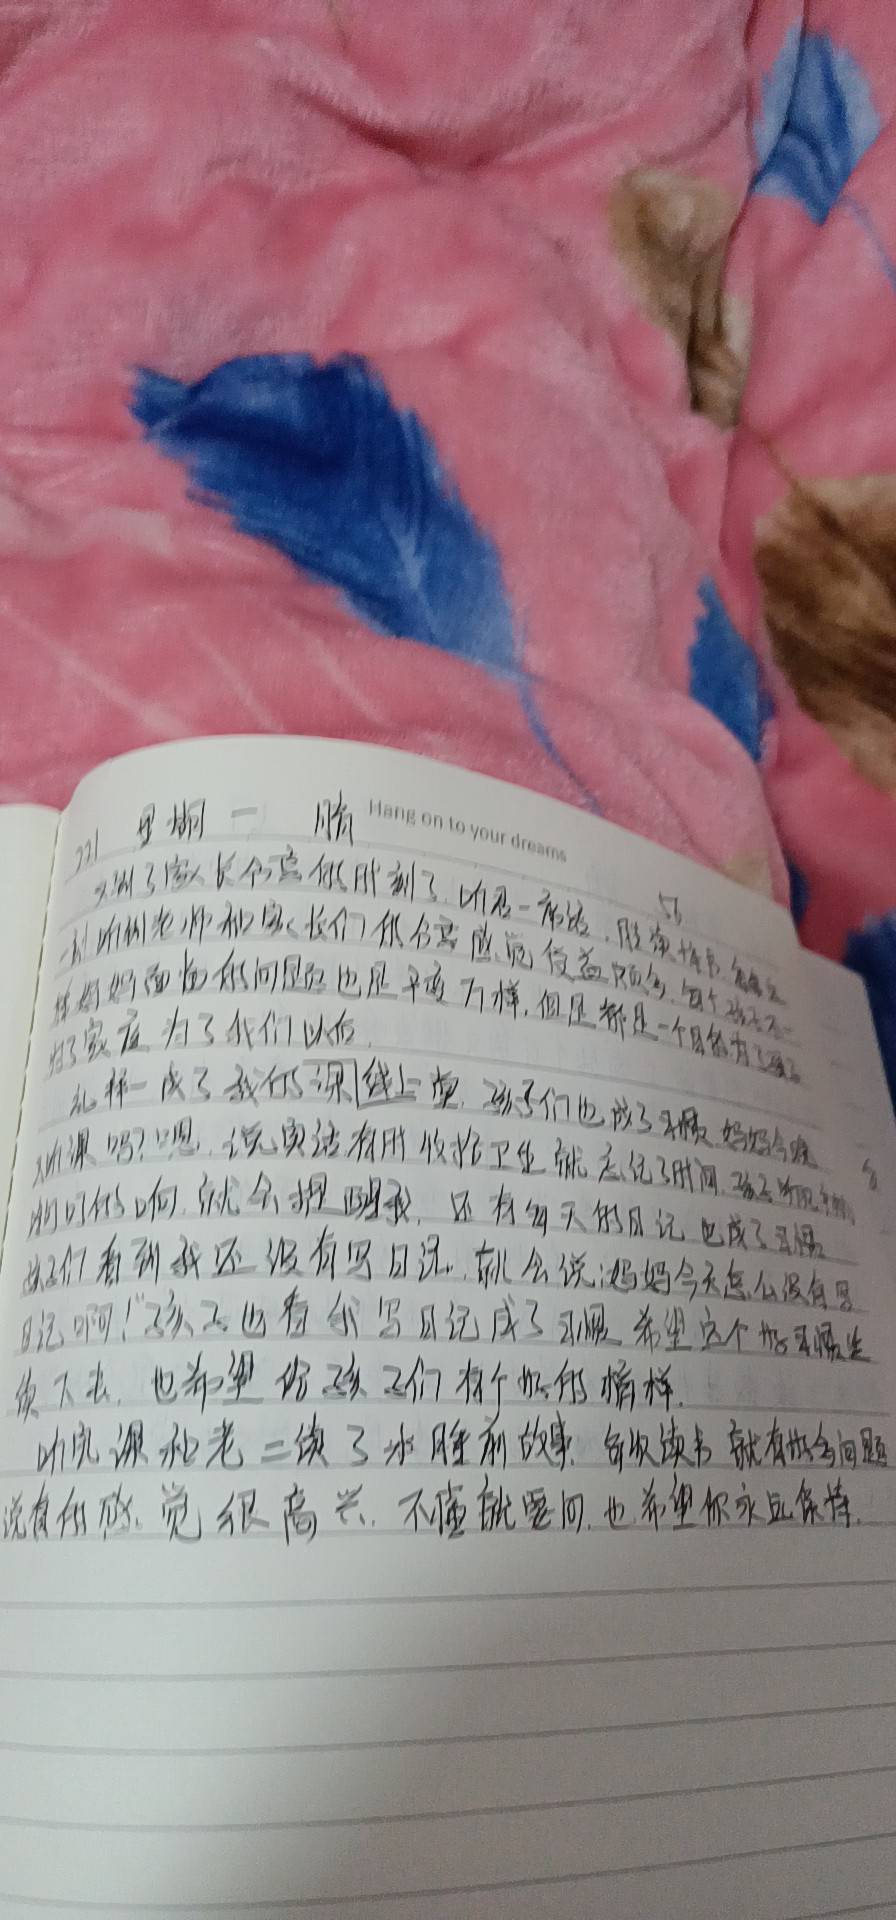 221 星期一 晴 Hang on to your dreams
56
又到了家长会意的时刻了.听君一席话,胜读十年书,每每
一刻听到老师和家长们的分享感觉受益颇多,每个孩子不一
样妈妈面临的问题也是千变万样,但是都是一个目的为了孩子
为了家庭为了我们以后.
礼拜一成了我的课线上课,孩子们也成了习惯 妈妈今晚
听课吗?嗯,说实话有时收拾卫生就忘记了时间,孩子
时间,就会提醒我,还有每天的日记也成了习惯
孩子们看到我还没有写日记,就会说:妈妈今天怎么没有写
日记啊!"孩子也看我写日记成了习惯 希望这个好习惯延
续下去,也希望给孩子们有个好的榜样.
听完课和老二读了水睡前故事,每次读书就有好多问题
说真的感觉很高兴,不懂就要问,也希望你永远保持.